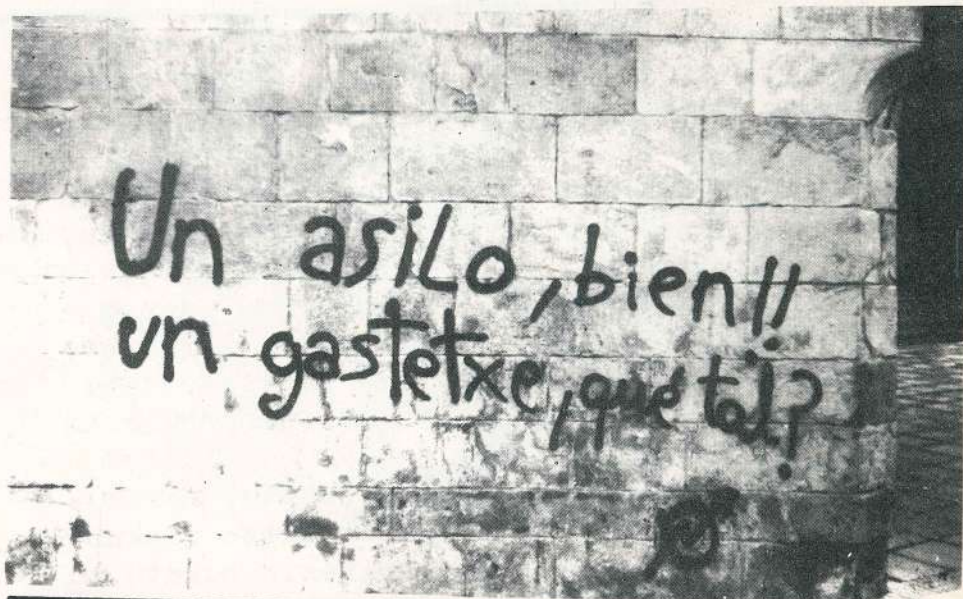 Un asilo, bien!!
un gastetxe, qué tal?